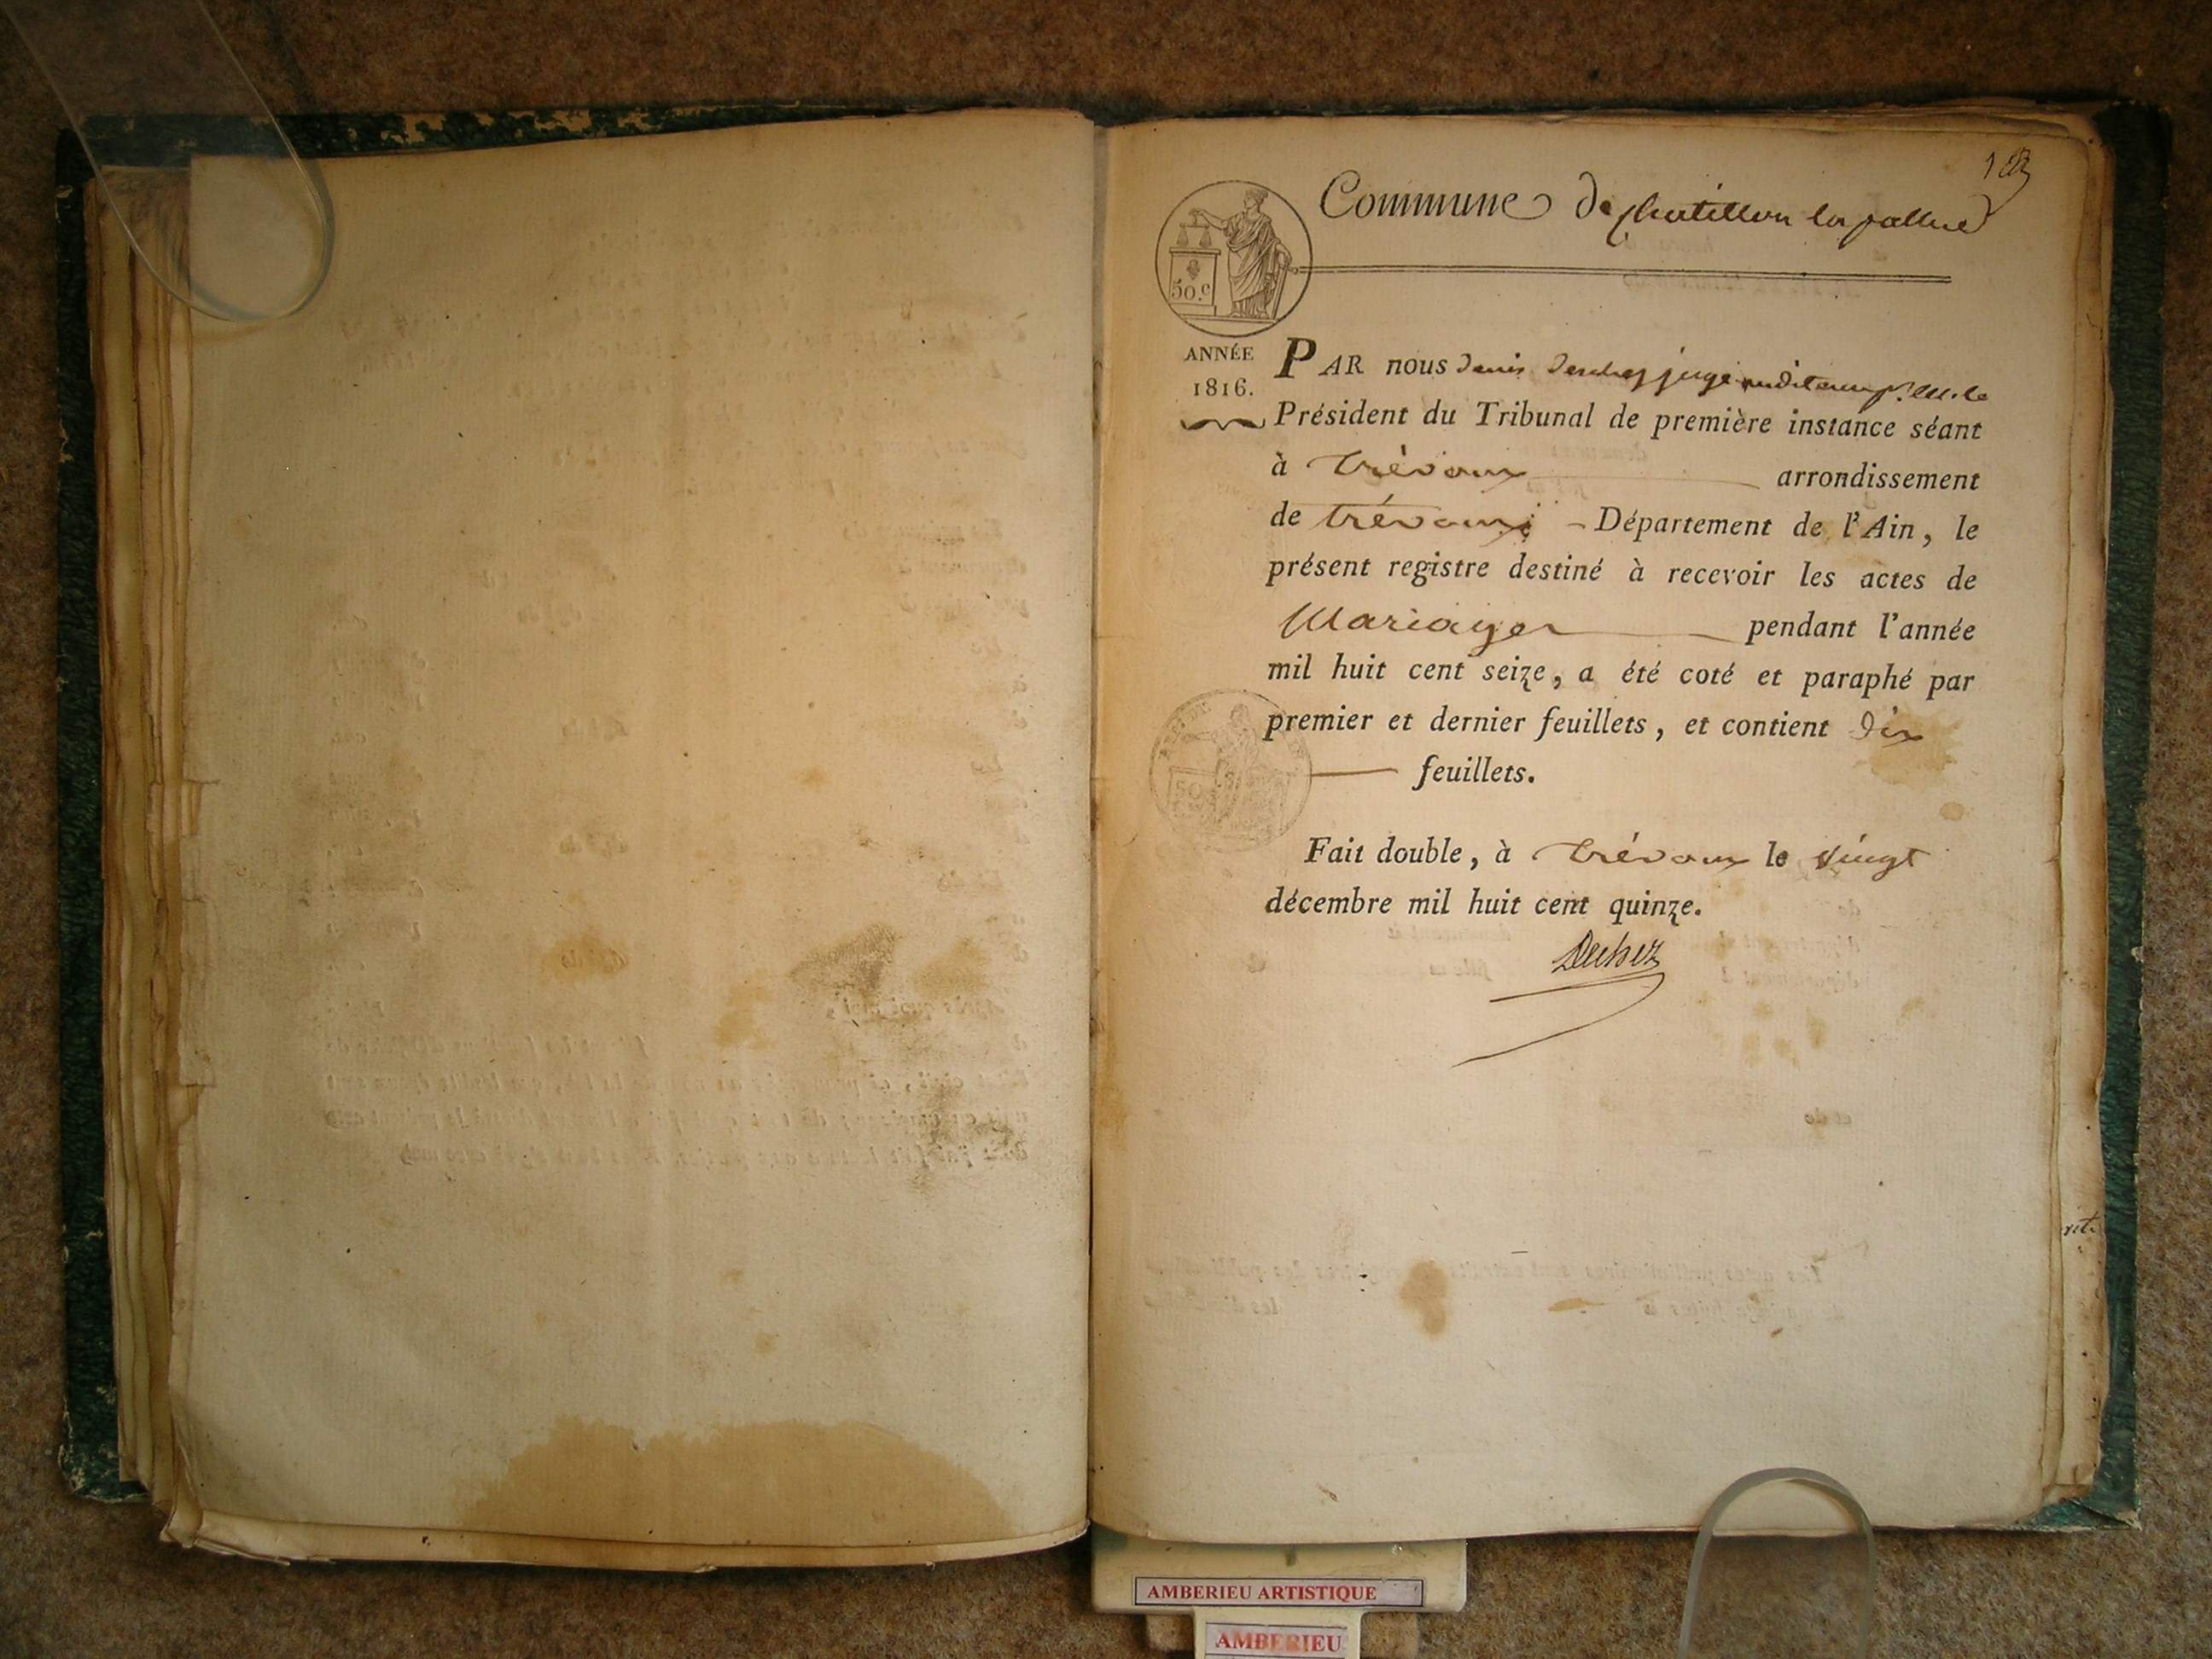 Commune de chatillon la pallud
50.c
ANNÉE
1816.
PAR nous denis juge auditeur pr. M. le
Président du Tribunal de première instance séant
à trévoux arrondissement
de trévoux - Département de l'Ain, le
présent registre destiné à recevoir les actes de
Mariages pendant l'année
mil huit cent seize, a été coté et paraphé par
premier et dernier feuillets, et contient dix
feuillets.
Fait double, à trévoux le vingt
décembre mil huit cent quinze.
AMBERIEU ARTISTIQUE
AMBERIEU